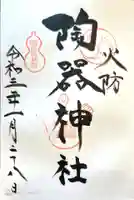 火防
陶器神社
令和三年一月二十八日